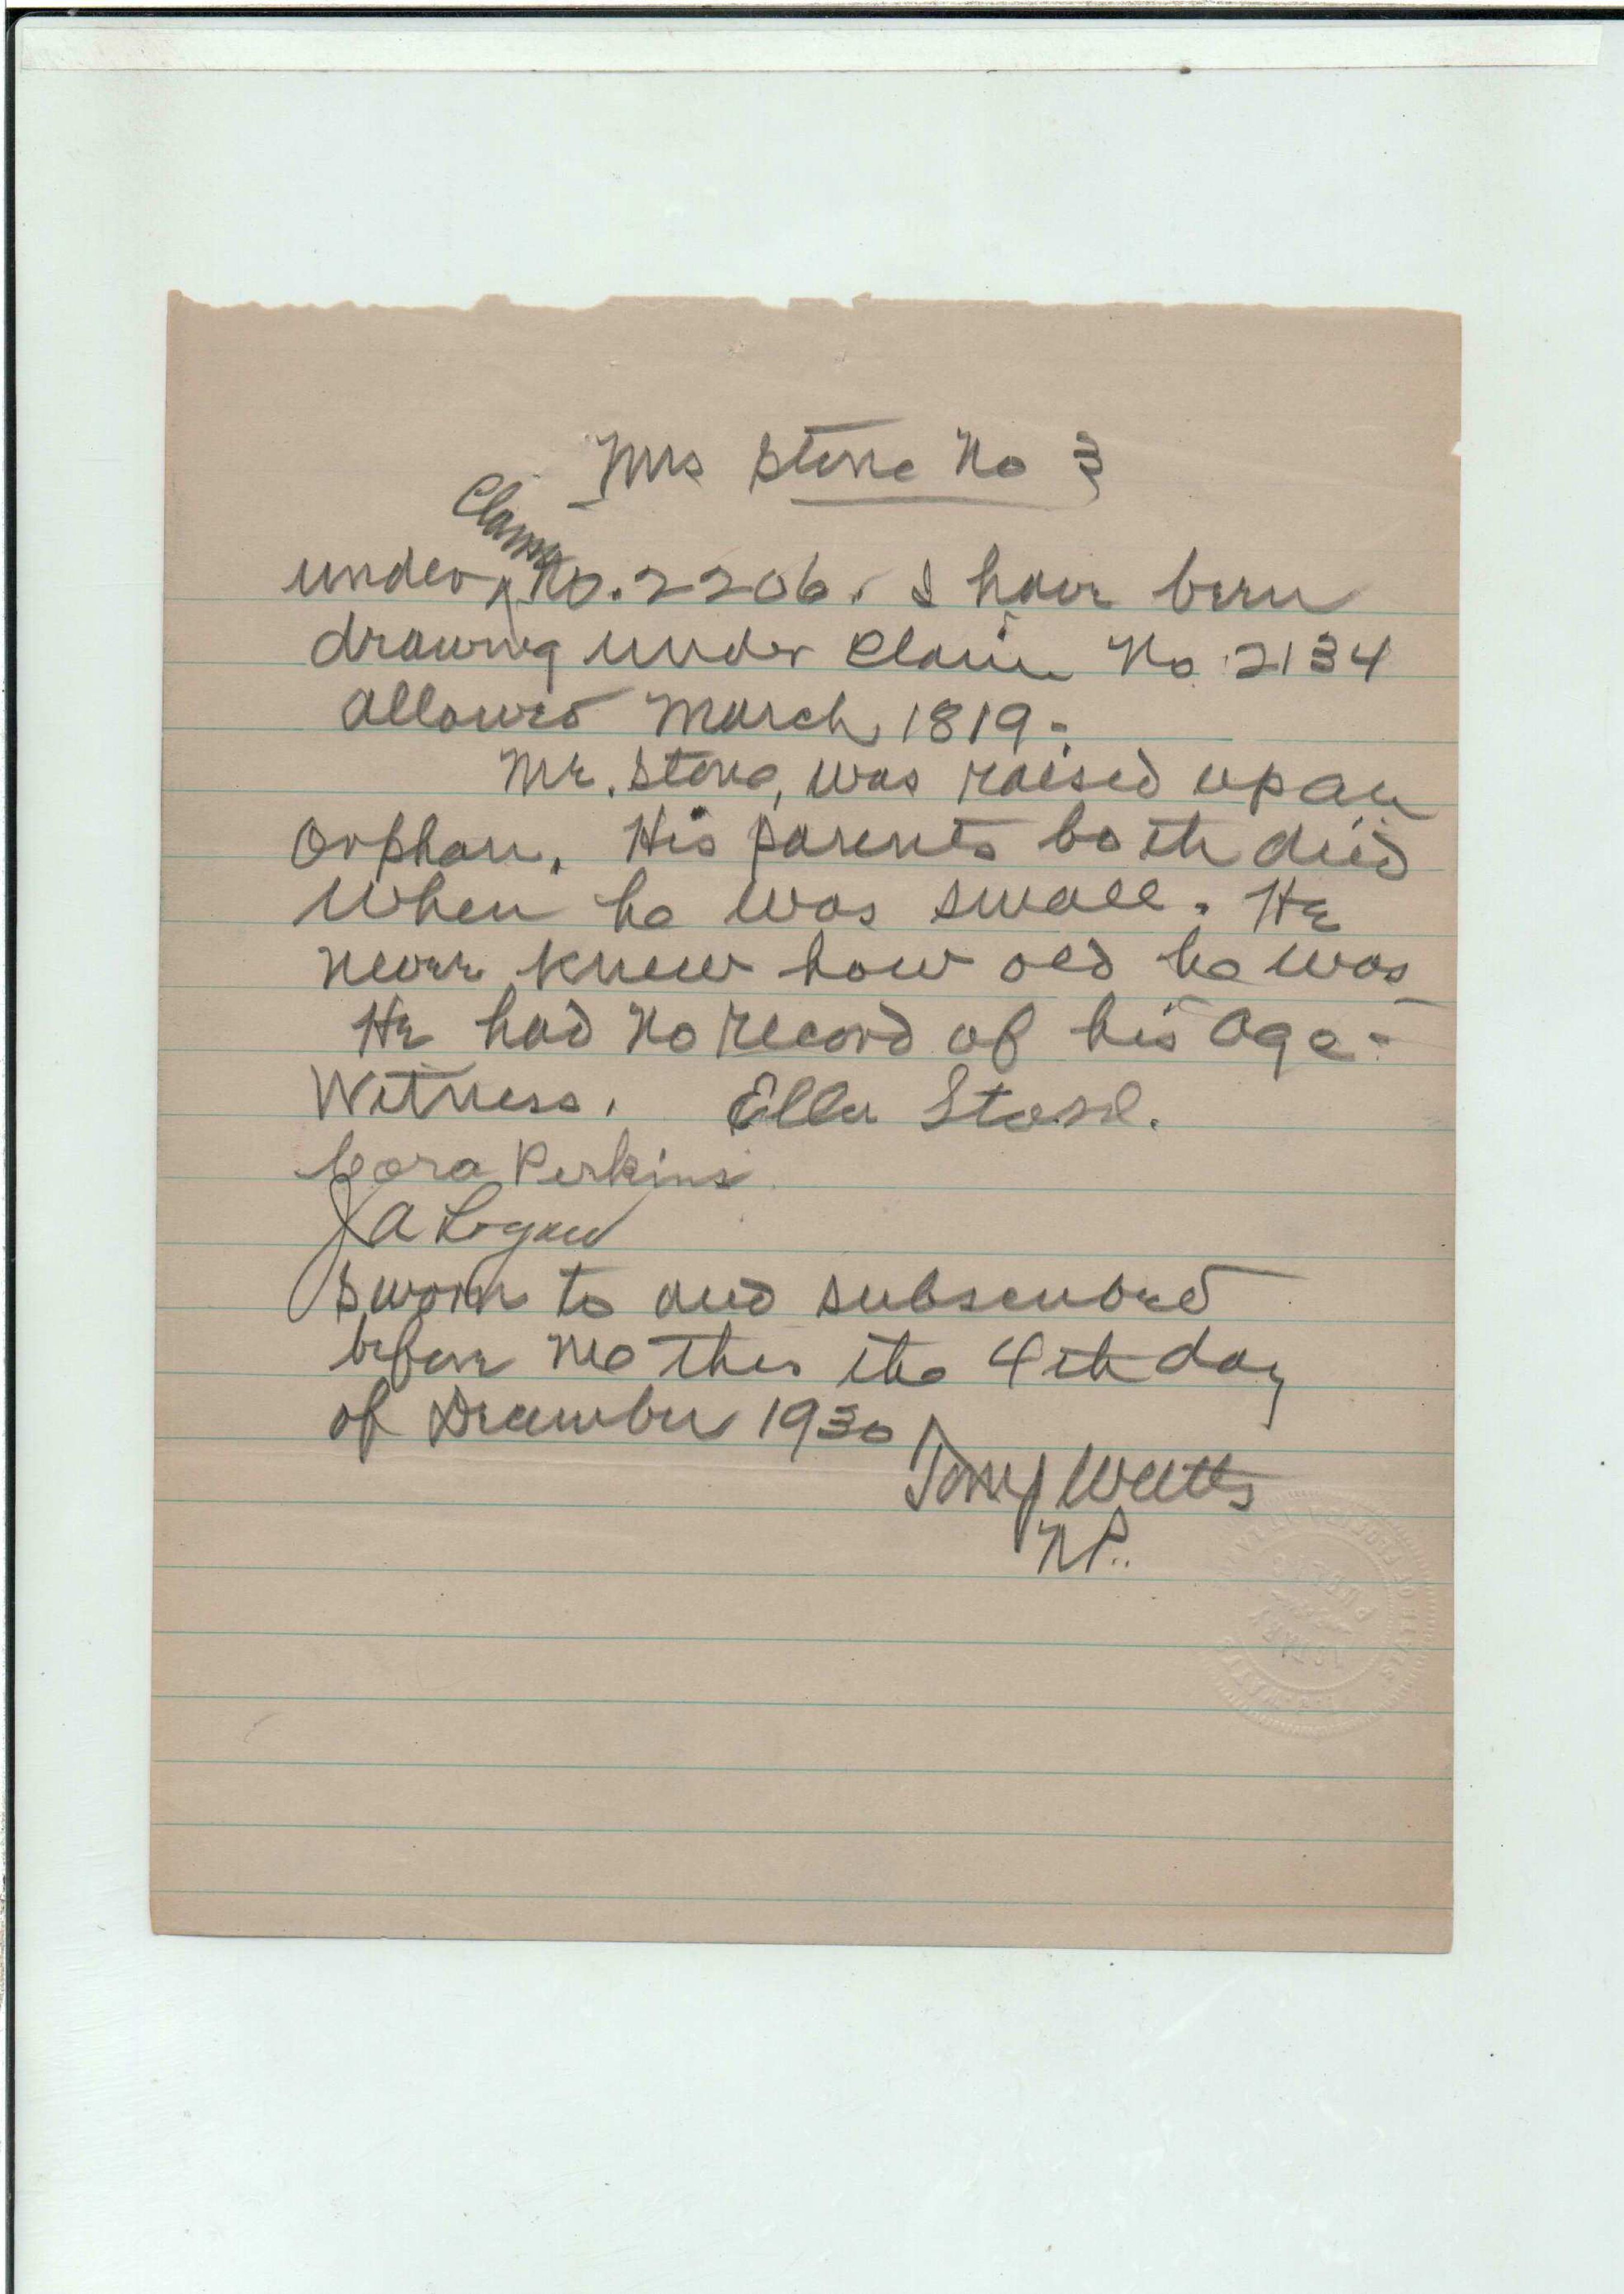 Mrs Stone No 3
Claim
under No. 2206. I have been
drawing under Claim No 2134
allowed March 1819-
Mr. Stone, was raised up an
Orphan. His parents both died
when he was small. He
never knew how old he was
He had no record of his age-
Witness. Ella Stone.
Cora Perkins
JA Logan
Sworn to and subscribed
before me this the 4th day
of December 1930
Tony Watts
N.P.
NOTARY
PUBLIC